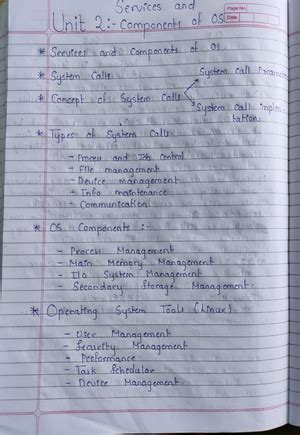 Services and
Unit 2:- Components of OS
Page No.
Date
* Services and Components of OS
* System Calls
System Call
* Concept of System Calls
System Call implemen
tations
* Types of System Calls
- Process and Job control
- File management
- Device management
- Info maintenance
- Communication
* OS Components :-
- Process Management
- Main Memory Management
- I/o System Management
- Secondary Storage Management
* Operating System Tools (Linux)
- User Management
- Security Management
- Performance
- Task Schedular
- Device Management